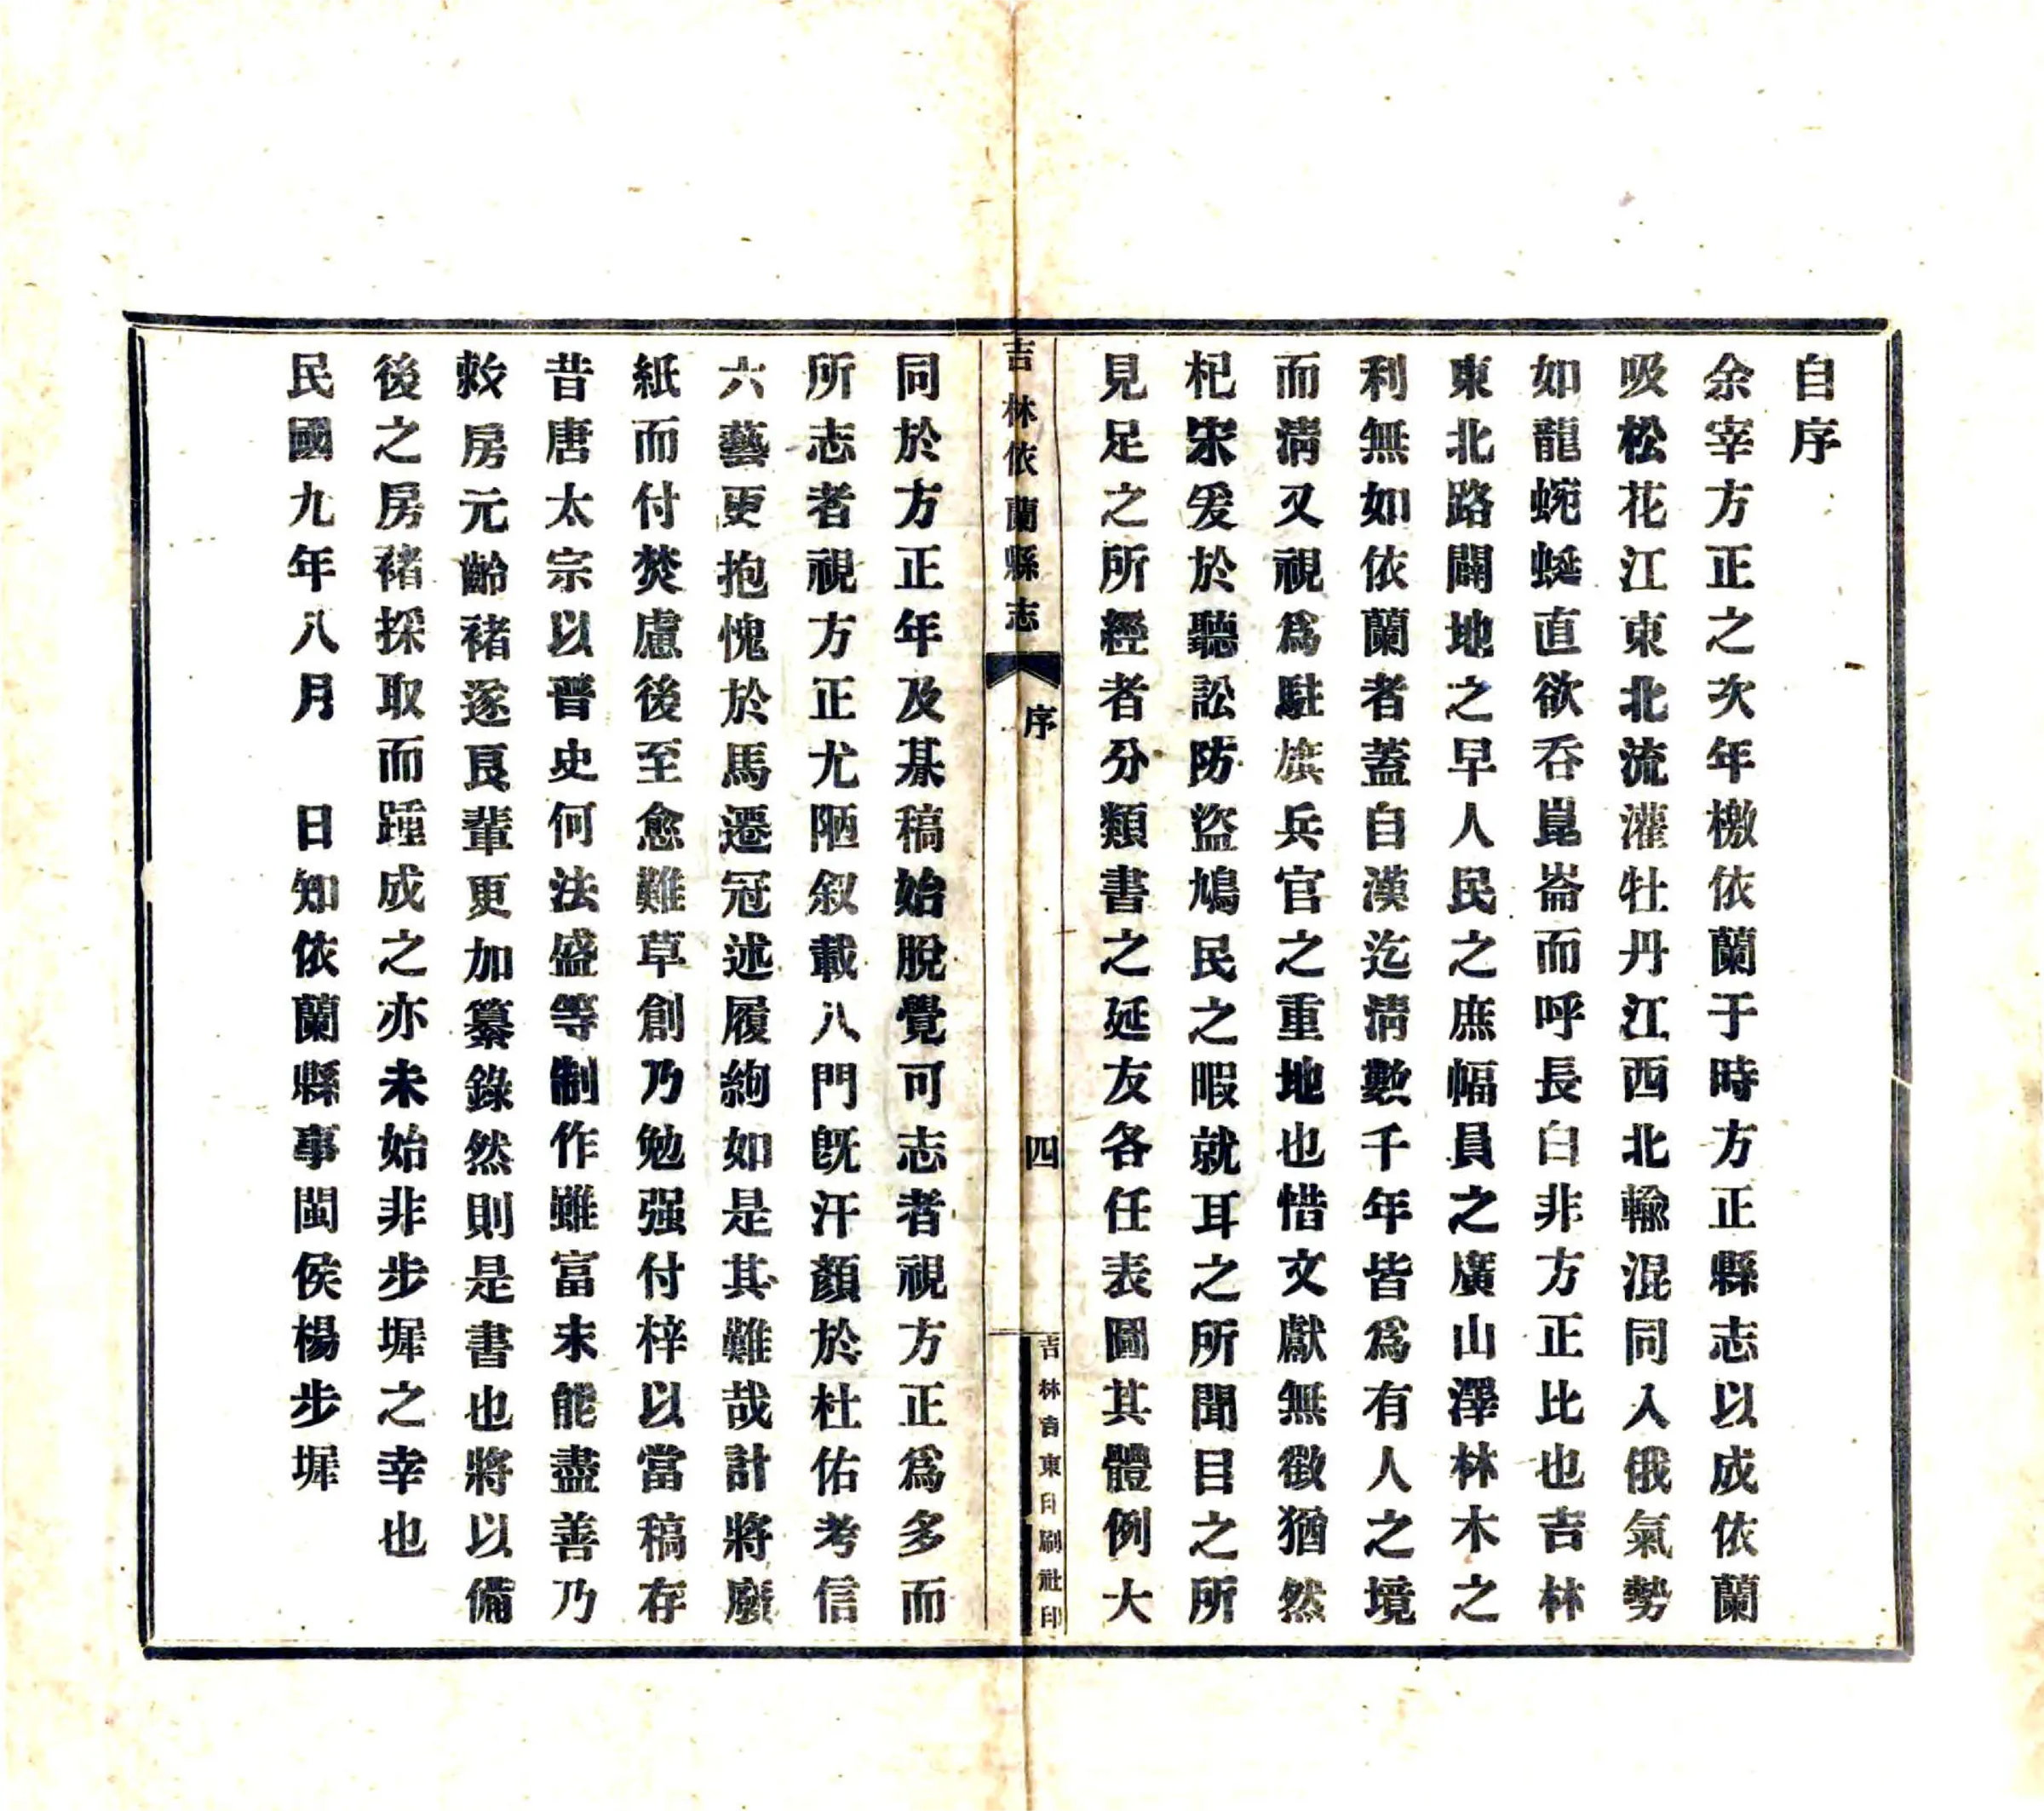 自序
余宰方正之次年檄依蘭于時方正縣志以成依蘭
吸松花江東北流灌牡丹江西北輸混同入俄氣勢
如龍蜿蜒直欲呑崑崙而呼長白非方正比也吉林
東北路闢地之早人民之庶幅員之廣山澤林木之
利無如依蘭者蓋自漢迄淸數千年皆爲有人之境
而淸又視爲駐旗兵官之重地也惜文獻無徵猶然
杞宋爰於聽訟防盜鳩民之暇就耳之所聞目之所
見足之所經者分類書之延友各任表圖其體例大
吉林依蘭縣志
序
四
吉林吉東印刷社印
同於方正年及朞稿始脫覺可志者視方正爲多而
所志者視方正尤陋叙載八門旣汗顏於杜佑考信
六藝更抱愧於馬遷冠述履絇如是其難哉計將廢
紙而付焚慮後至愈難草創乃勉强付梓以當稿存
昔唐太宗以晉史何法盛等制作雖富未能盡善乃
敕房元齡褚遂良輩更加纂錄然則是書也將以備
後之房褚採取而踵成之亦未始非步墀之幸也
民國九年八月　日知依蘭縣事閩侯楊步墀